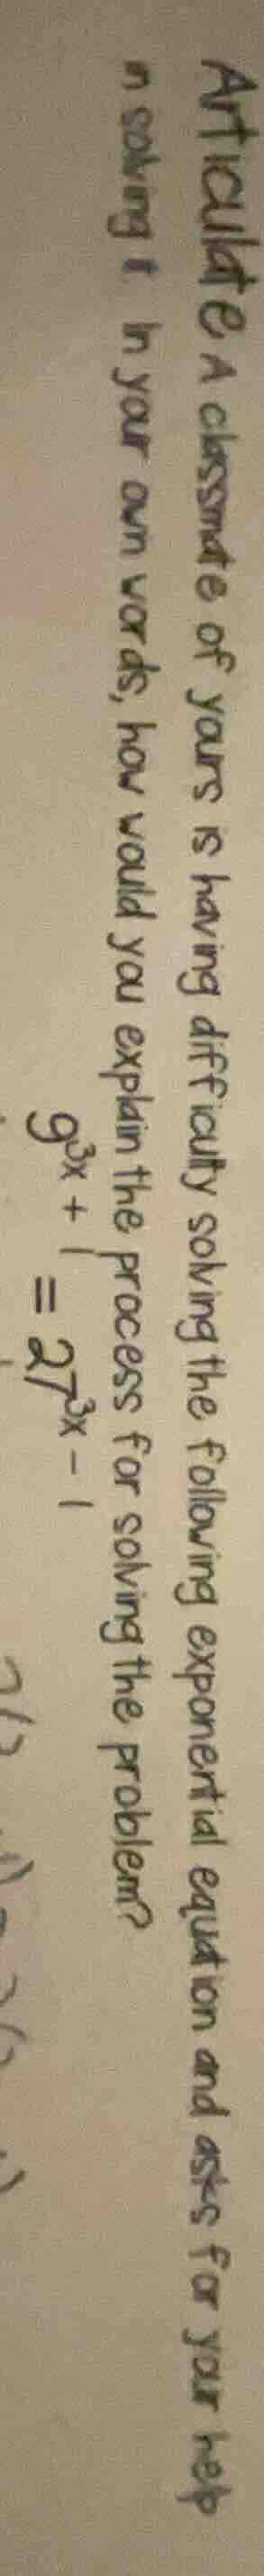 Articulate A classmate of yours is having difficulty solving the following exponential equation and asks for your help
n solving it. In your own words, how would you explain the process for solving the problem?
9^{3x + 1} = 27^{3x - 1}